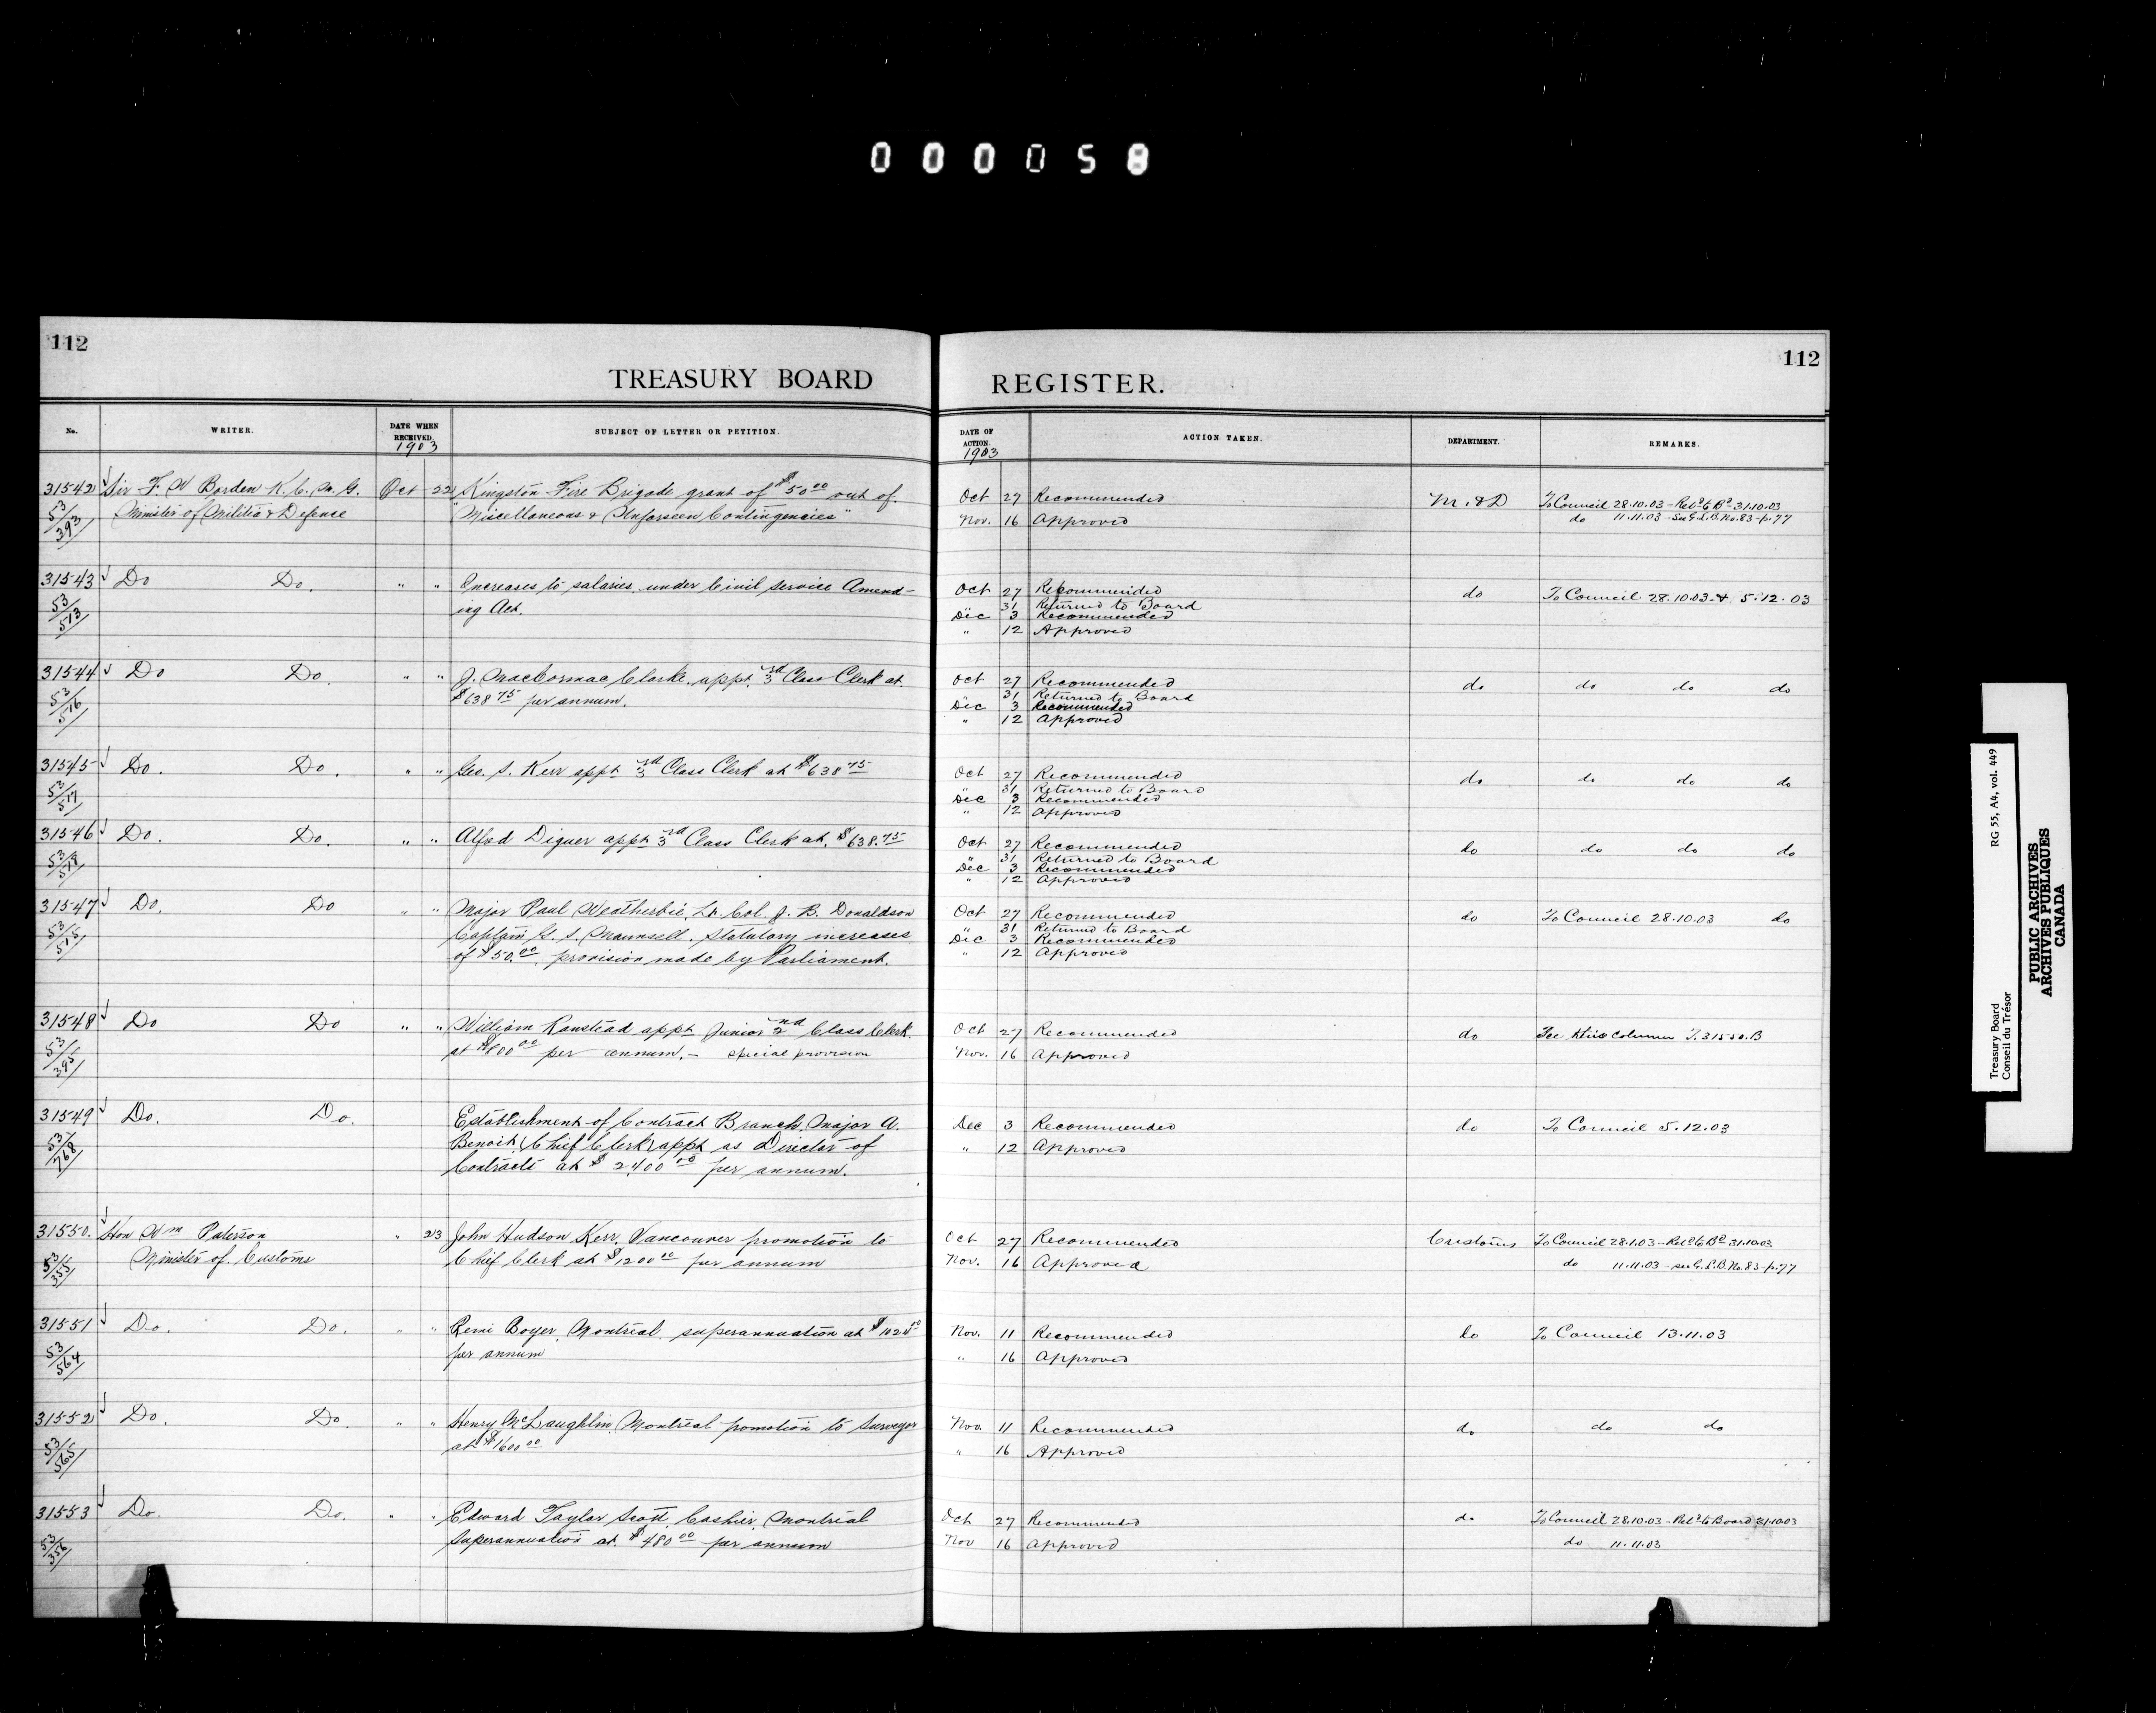 000058
112
TREASURY BOARD
REGISTER.
112
No.
WRITER.
DATE WHEN RECEIVED.
1903
SUBJECT OF LETTER OR PETITION.
DATE OF ACTION.
1903
ACTION TAKEN.
DEPARTMENT.
REMARKS.
31542 Sir F. W Borden K.C.M.G. Oct 22 Kingston Fire Brigade grant of $50 00 out of
53/393 Minister of Militia & Defence "Miscellaneous & Unforseen Contingencies"
Oct 27 Recommended M. & D To Council 28.10.03 - Ret'd to Bd 31.10.03
Nov. 16 Approved do 11.11.03 - See G.L.B. No. 83 - p. 77
31543 Do Do. " " Increases to salaries under Civil Service Amend-
53/513 ing Act.
Oct 27 Recommended do To Council 28.10.03 & 5.12.03
" 31 Returned to Board
Dec 3 Recommended
" 12 Approved
31544 Do Do. " " J. MacCormac Clarke. appt. 3rd Class Clerk at
53/516 $638 75 per annum.
Oct 27 Recommended do do do do
" 31 Returned to Board
Dec 3 Recommended
" 12 Approved
31545 Do. Do. " " Geo. S. Kerr appt 3rd Class Clerk at $638 75
53/517
Oct 27 Recommended do do do do
" 31 Returned to Board
Dec 3 Recommended
" 12 Approved
31546 Do. Do. " " Alfred Diguer appt 3rd Class Clerk at $638.75
Oct 27 Recommended do do do do
" 31 Returned to Board
Dec 3 Recommended
" 12 Approved
31547 Do. Do " " Major Paul Weatherbie, Lt. Col. J. B. Donaldson
53/515 Captain G. S. Maunsell. Statutory increases
of $50.00. provision made by Parliament.
Oct 27 Recommended do To Council 28.10.03 do
" 31 Returned to Board
Dec 3 Recommended
" 12 Approved
31548 Do Do " " William Ranstead appt Junior 2nd Class Clerk
53/395 at $800 00 per annum. - special provision
Oct 27 Recommended do See this column T. 31550. B
Nov. 16 Approved
31549 Do. Do. Establishment of Contract Branch. Major A.
53/768 Benoit (Chief Clerk) appt as Director of
Contracts at $2,400 00 per annum.
Dec 3 Recommended do To Council 5.12.03
" 12 Approved
31550. Hon Wm Paterson " 23 John Hudson Kerr, Vancouver promotion to
53/355 Minister of Customs Chief Clerk at $1200 00 per annum
Oct 27 Recommended Customs To Council 28.1.03 - Ret'd to Bd 31.10.03
Nov. 16 Approved do 11.11.03 - see G.L.B. No. 83 - p. 77
31551 Do. Do. " " Remi Boyer, Montreal. superannuation at
53/564 per annum
Nov. 11 Recommended do To Council 13.11.03
" 16 Approved
31552 Do. Do. " " Henry McLaughlin, Montreal promotion to Surveyor
53/565 at $1600 00
Nov. 11 Recommended do do do
" 16 Approved
31553 Do. Do. " " Edward Taylor Scott, Cashier, Montreal
53/356 Superannuation at $480 00 per annum
Oct 27 Recommended do To Council 28.10.03 - Ret'd to Board 31.10.03
Nov 16 Approved do 11.11.03
Treasury Board
Conseil du Trésor
RG 55, A4, vol. 449
PUBLIC ARCHIVES
ARCHIVES PUBLIQUES
CANADA